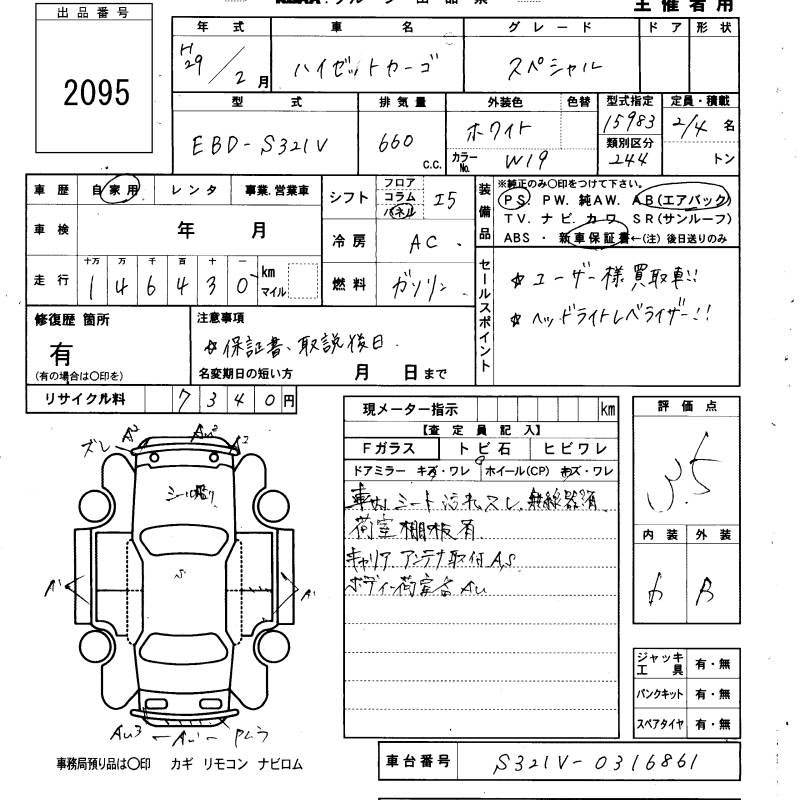 主催者用
出品番号
2095
年式 車名 グレード ドア 形状
H29/2月 ハイゼットカーゴ スペシャル
型式 排気量 外装色 色替 型式指定 定員・積載
EBD-S321V 660 C.C. ホワイト 15983 2/4名
カラーNo. W19 類別区分 244 トン
車歴 自家用 レンタ 事業.営業車
シフト フロア コラム パネル I5
車検 年 月
冷房 AC
走行 十万 万 千 百 十 一
146430 km マイル
燃料 ガソリン
装備品 ※純正のみ○印をつけて下さい。
PS PW. 純AW. AB(エアバック)
TV. ナビ. カワ SR(サンルーフ)
ABS ・ 新車保証書←(注) 後日送りのみ
セールスポイント
☆ユーザー様買取車!!
☆ヘッドライトレベライザー!!
修復歴 箇所
有
(有の場合は○印を)
注意事項
☆保証書、取説後日.
名変期日の短い方 月 日まで
リサイクル料 7340円
現メーター指示 km
【査定員記入】
Fガラス トビ石 ヒビワレ
ドアミラー キズ・ワレ ホイール(CP) キズ・ワレ
車内シート汚れスレ.無線器有
荷室棚板有
キャリア アンテナ取付A,S
ボディー荷室各AU
評価点
3.5
内装 外装
B
ズレ A2 AU2 A2
S
A1 A1
AU3 ← AU1
ジャッキ工具 有・無
パンクキット 有・無
スペアタイヤ 有・無
事務局預り品は○印 カギ リモコン ナビロム
車台番号 S321V-0316861